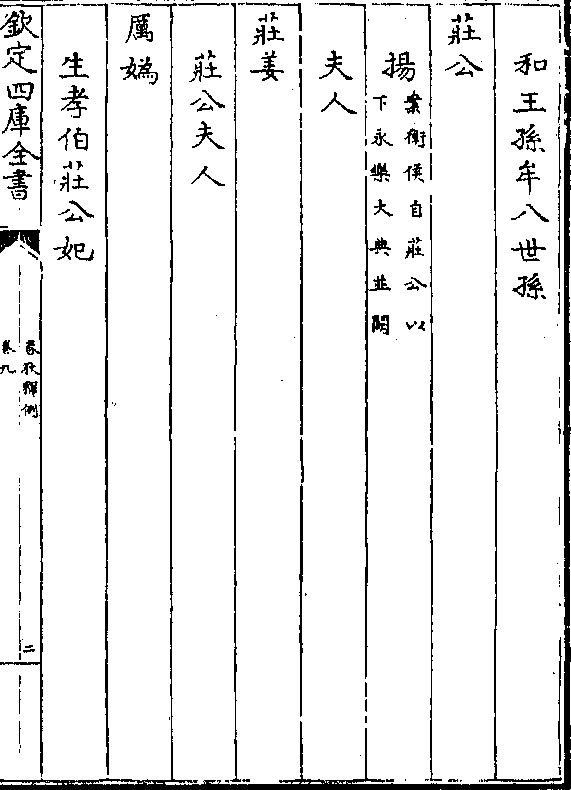 和王孫牟八世孫
莊公
揚案衛侯自莊公以
下永樂大典並闕
夫人
莊姜
莊公夫人
厲媯
生孝伯莊公妃
欽定四庫全書
春秋釋例
卷九
二